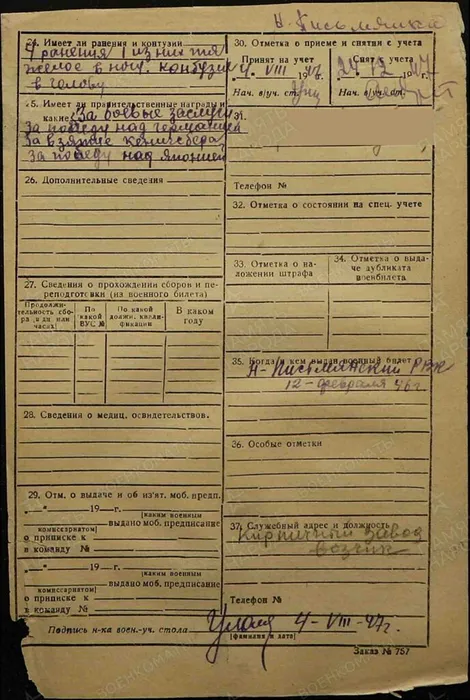 Н-Письмянка
24. Имеет ли ранения и контузии
4 ранения 1 из них тя
желое в ногу. контузия
в голову
25. Имеет ли правительственные награды и
какие За боевые заслуги
За победу над германией
За взятие кенигсберга
За победу над японией
26. Дополнительные сведения
27. Сведения о прохождении сборов и пе-
реподготовки (из военного билета)
Продолжи-
тельность сбо-
ра (в дн. или
часах)
По
какой
ВУС №
По какой
должн. квали-
фикации
В каком
году
28. Сведения о медиц. освидетельствов.
29. Отм. о выдаче и об из'ят. моб. предп.
„ “ 19 — г.
(каким военным
выдано моб. предписание
комиссариатом)
о приписке к
в команду №
„ “ 19 — г.
(каким военным
выдано моб. предписание
комиссариатом)
о приписке к
в команду №
Подпись н-ка воен.-уч. стола
4-VIII-47г.
(фамилия и дата)
30. Отметка о приеме и снятии с учета
Принят на учет
4. VIII 1947г.
Нач. в/уч. ст.
Снят с учета
24 12 1947
Нач. в/уч. ст.
31.
Телефон №
32. Отметка о состоянии на спец. учете
33. Отметка о на-
ложении штрафа
34. Отметка о выда-
че дубликата
военбилета
35. Когда и кем выдан военный билет
Н-Письмянский РВК
12-февраля 46г
36. Особые отметки
37. Служебный адрес и должность
Кирпичный завод
возчик
Телефон №
Заказ № 757